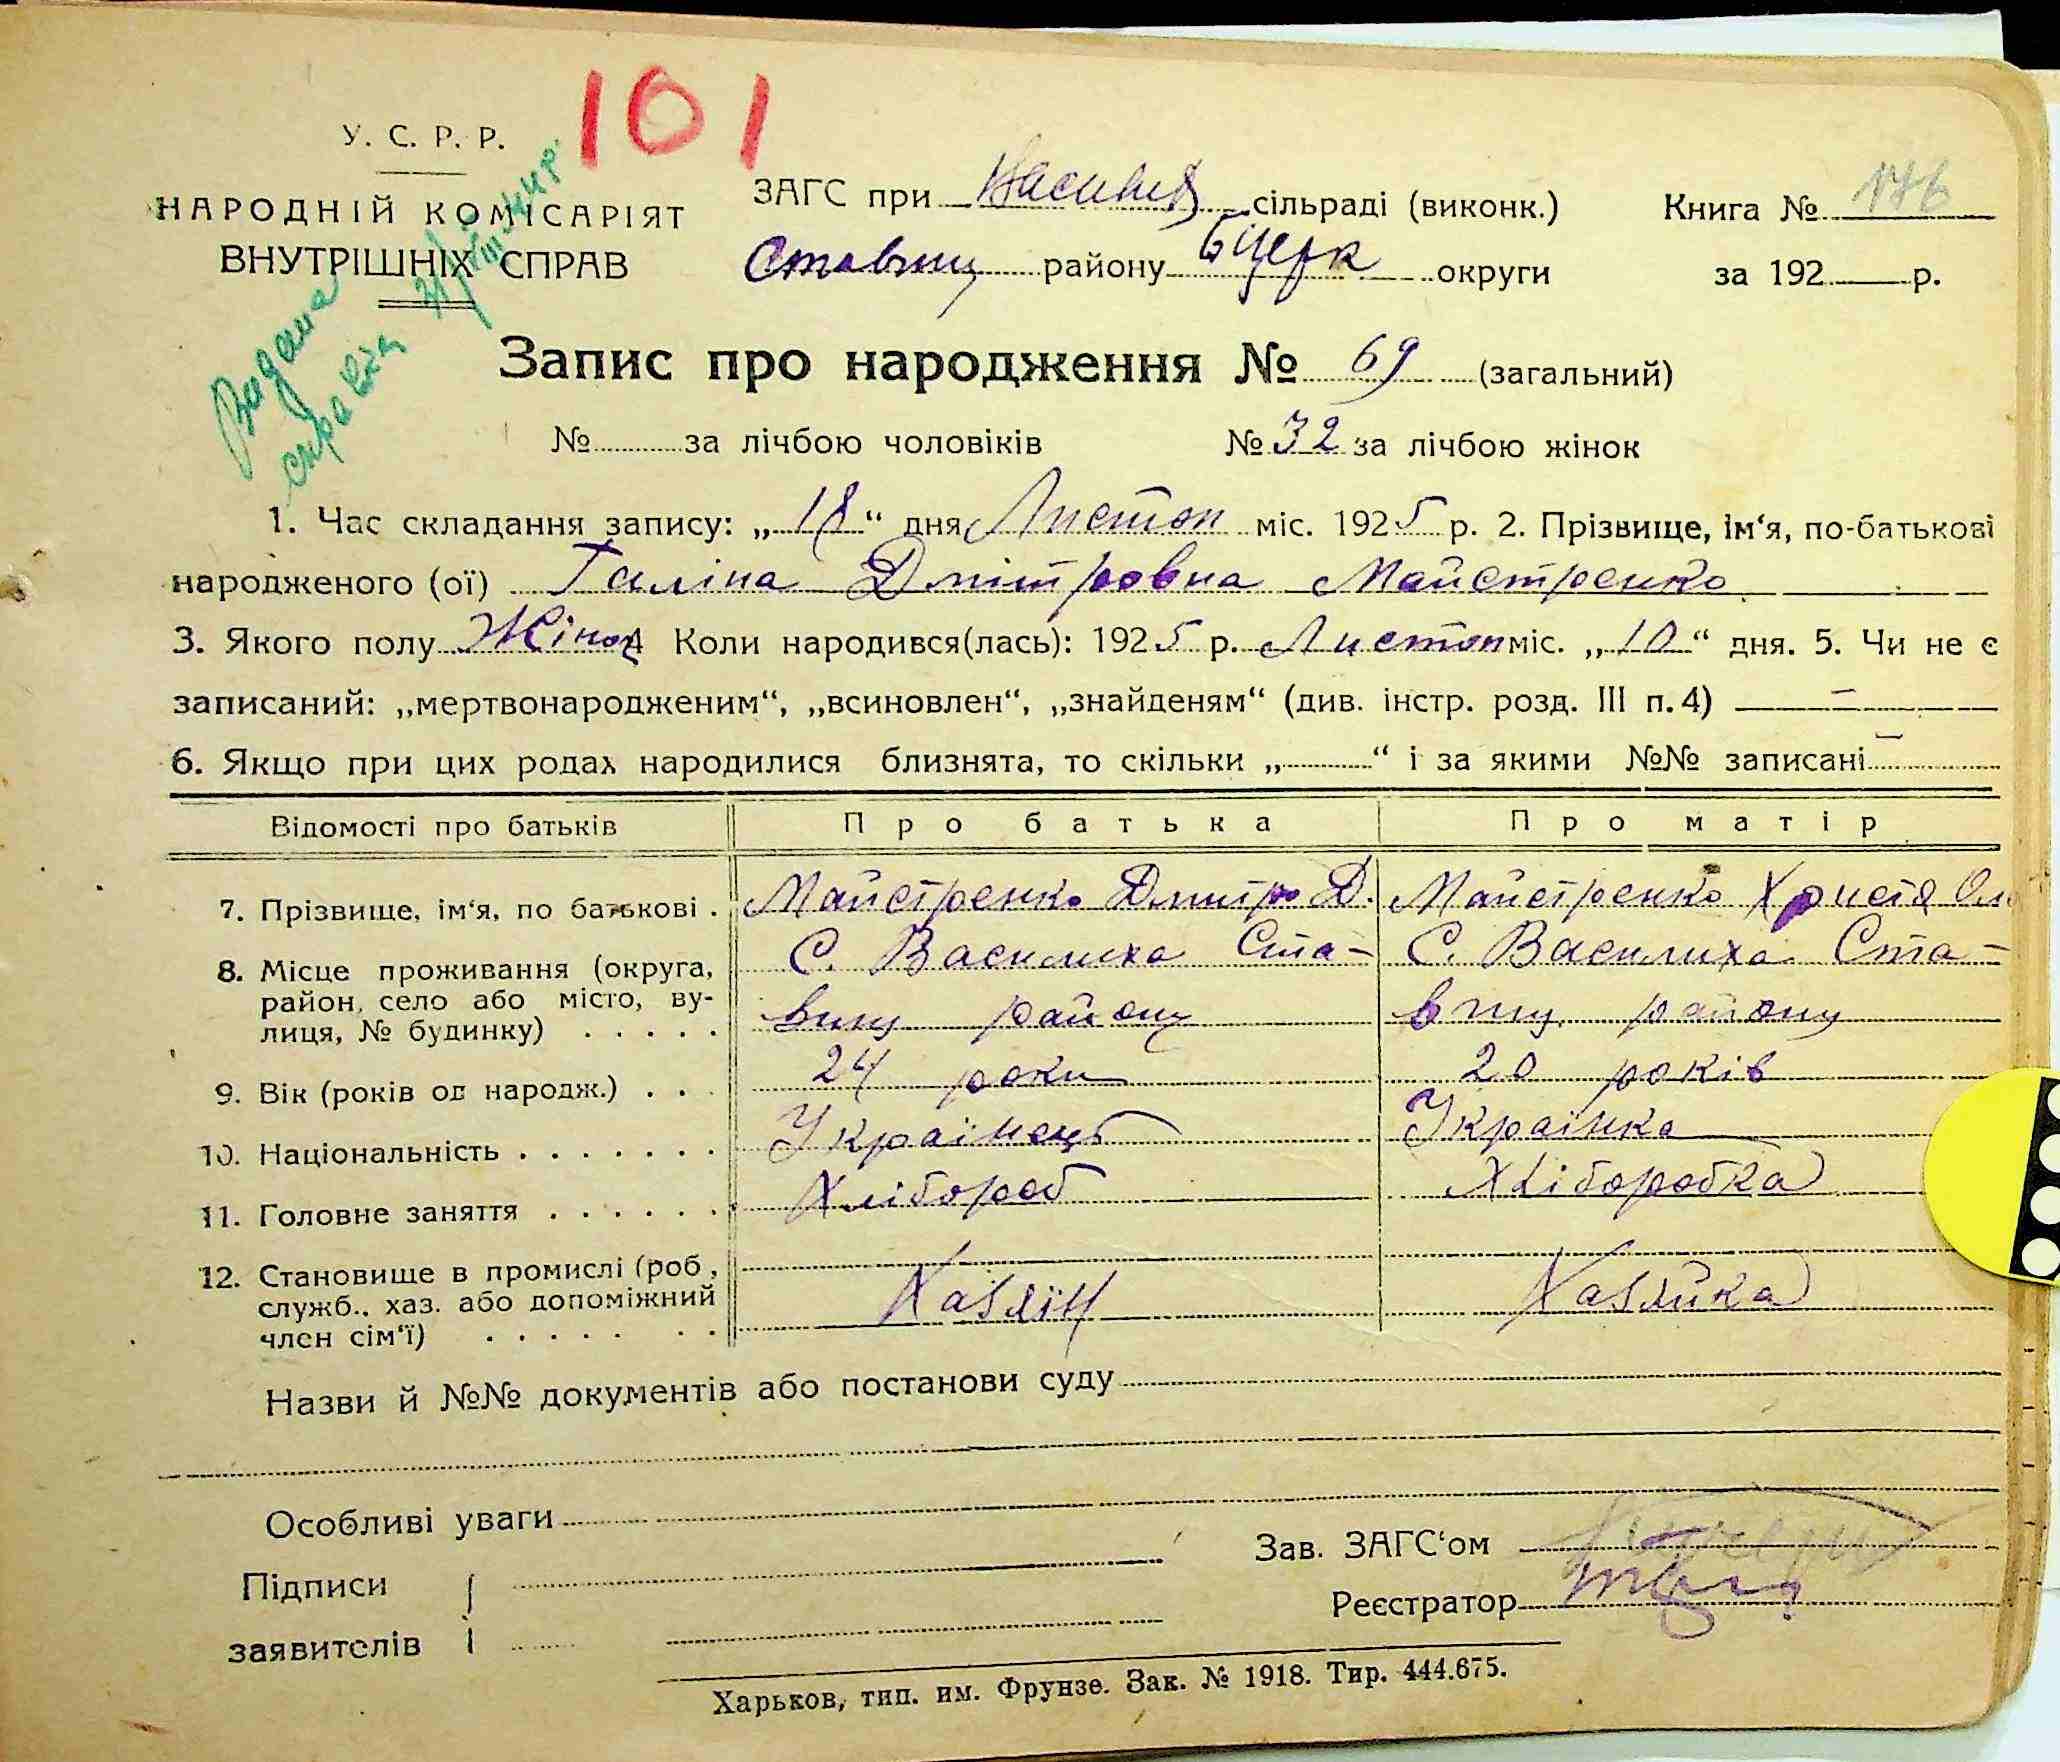 101
У. С. Р. Р.
НАРОДНІЙ КОМІСАРІЯТ
ВНУТРІШНІХ СПРАВ
Видана
справка
ЗАГС при Василів сільраді (виконк.)
Книга № 176
Ставищ району Б Церк округи
за 192 р.
Запис про народження № 69 (загальний)
№ за лічбою чоловіків № 32 за лічбою жінок
1. Час складання запису: „18“ дня Листоп міс. 1925 р. 2. Прізвище, ім‘я, по-батькові
народженого (ої) Галіна Дмітровна Майстренко
3. Якого полу Жіноч 4 Коли народився(лась): 1925 р. Листоп міс. „10“ дня. 5. Чи не є
записаний: „мертвонародженим“, „всиновлен“, „знайденям“ (див. інстр. розд. III п. 4) —
6. Якщо при цих родах народилися близнята, то скільки „ “ і за якими №№ записані —
Відомості про батьків Про батька Про матір
7. Прізвище, ім‘я, по батькові . Майстренко Дмитро Д. Майстренко Христя Ол.
8. Місце проживання (округа, С. Василиха Ста- С. Василиха Ста-
район, село або місто, ву- вищ району вищ району
лиця, № будинку) . . . . .
9. Вік (років од народж.) . . . 24 роки 20 років
10. Національність . . . . . . . Українець Українка
11. Головне заняття . . . . . . Хлібороб Хліборобка
12. Становище в промислі (роб.,
служб., хаз. або допоміжний Хазяїн Хазяйка
член сім‘ї) . . . . . . .
Назви й №№ документів або постанови суду
Особливі уваги
Зав. ЗАГС‘ом
Підписи
Реєстратор
заявителів
Харьков, тип. им. Фрунзе. Зак. № 1918. Тир. 444.675.